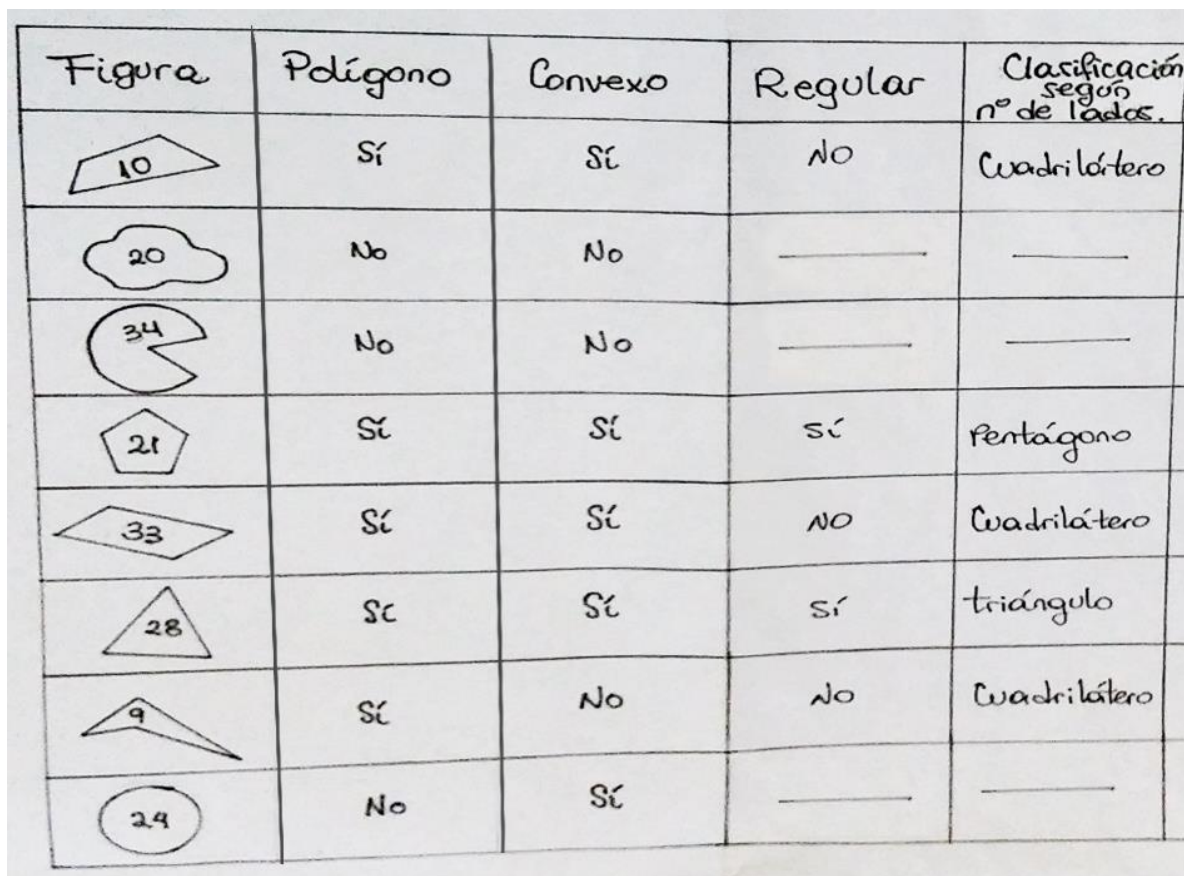 Figura Polígono Convexo Regular Clasificación
según
nº de lados.
10 Sí Sí NO Cuadrilátero
20 No No
34 No No
21 Sí Sí Sí Pentágono
33 Sí Sí NO Cuadrilátero
28 Sí Sí Sí triángulo
9 Sí No No Cuadrilátero
24 No Sí